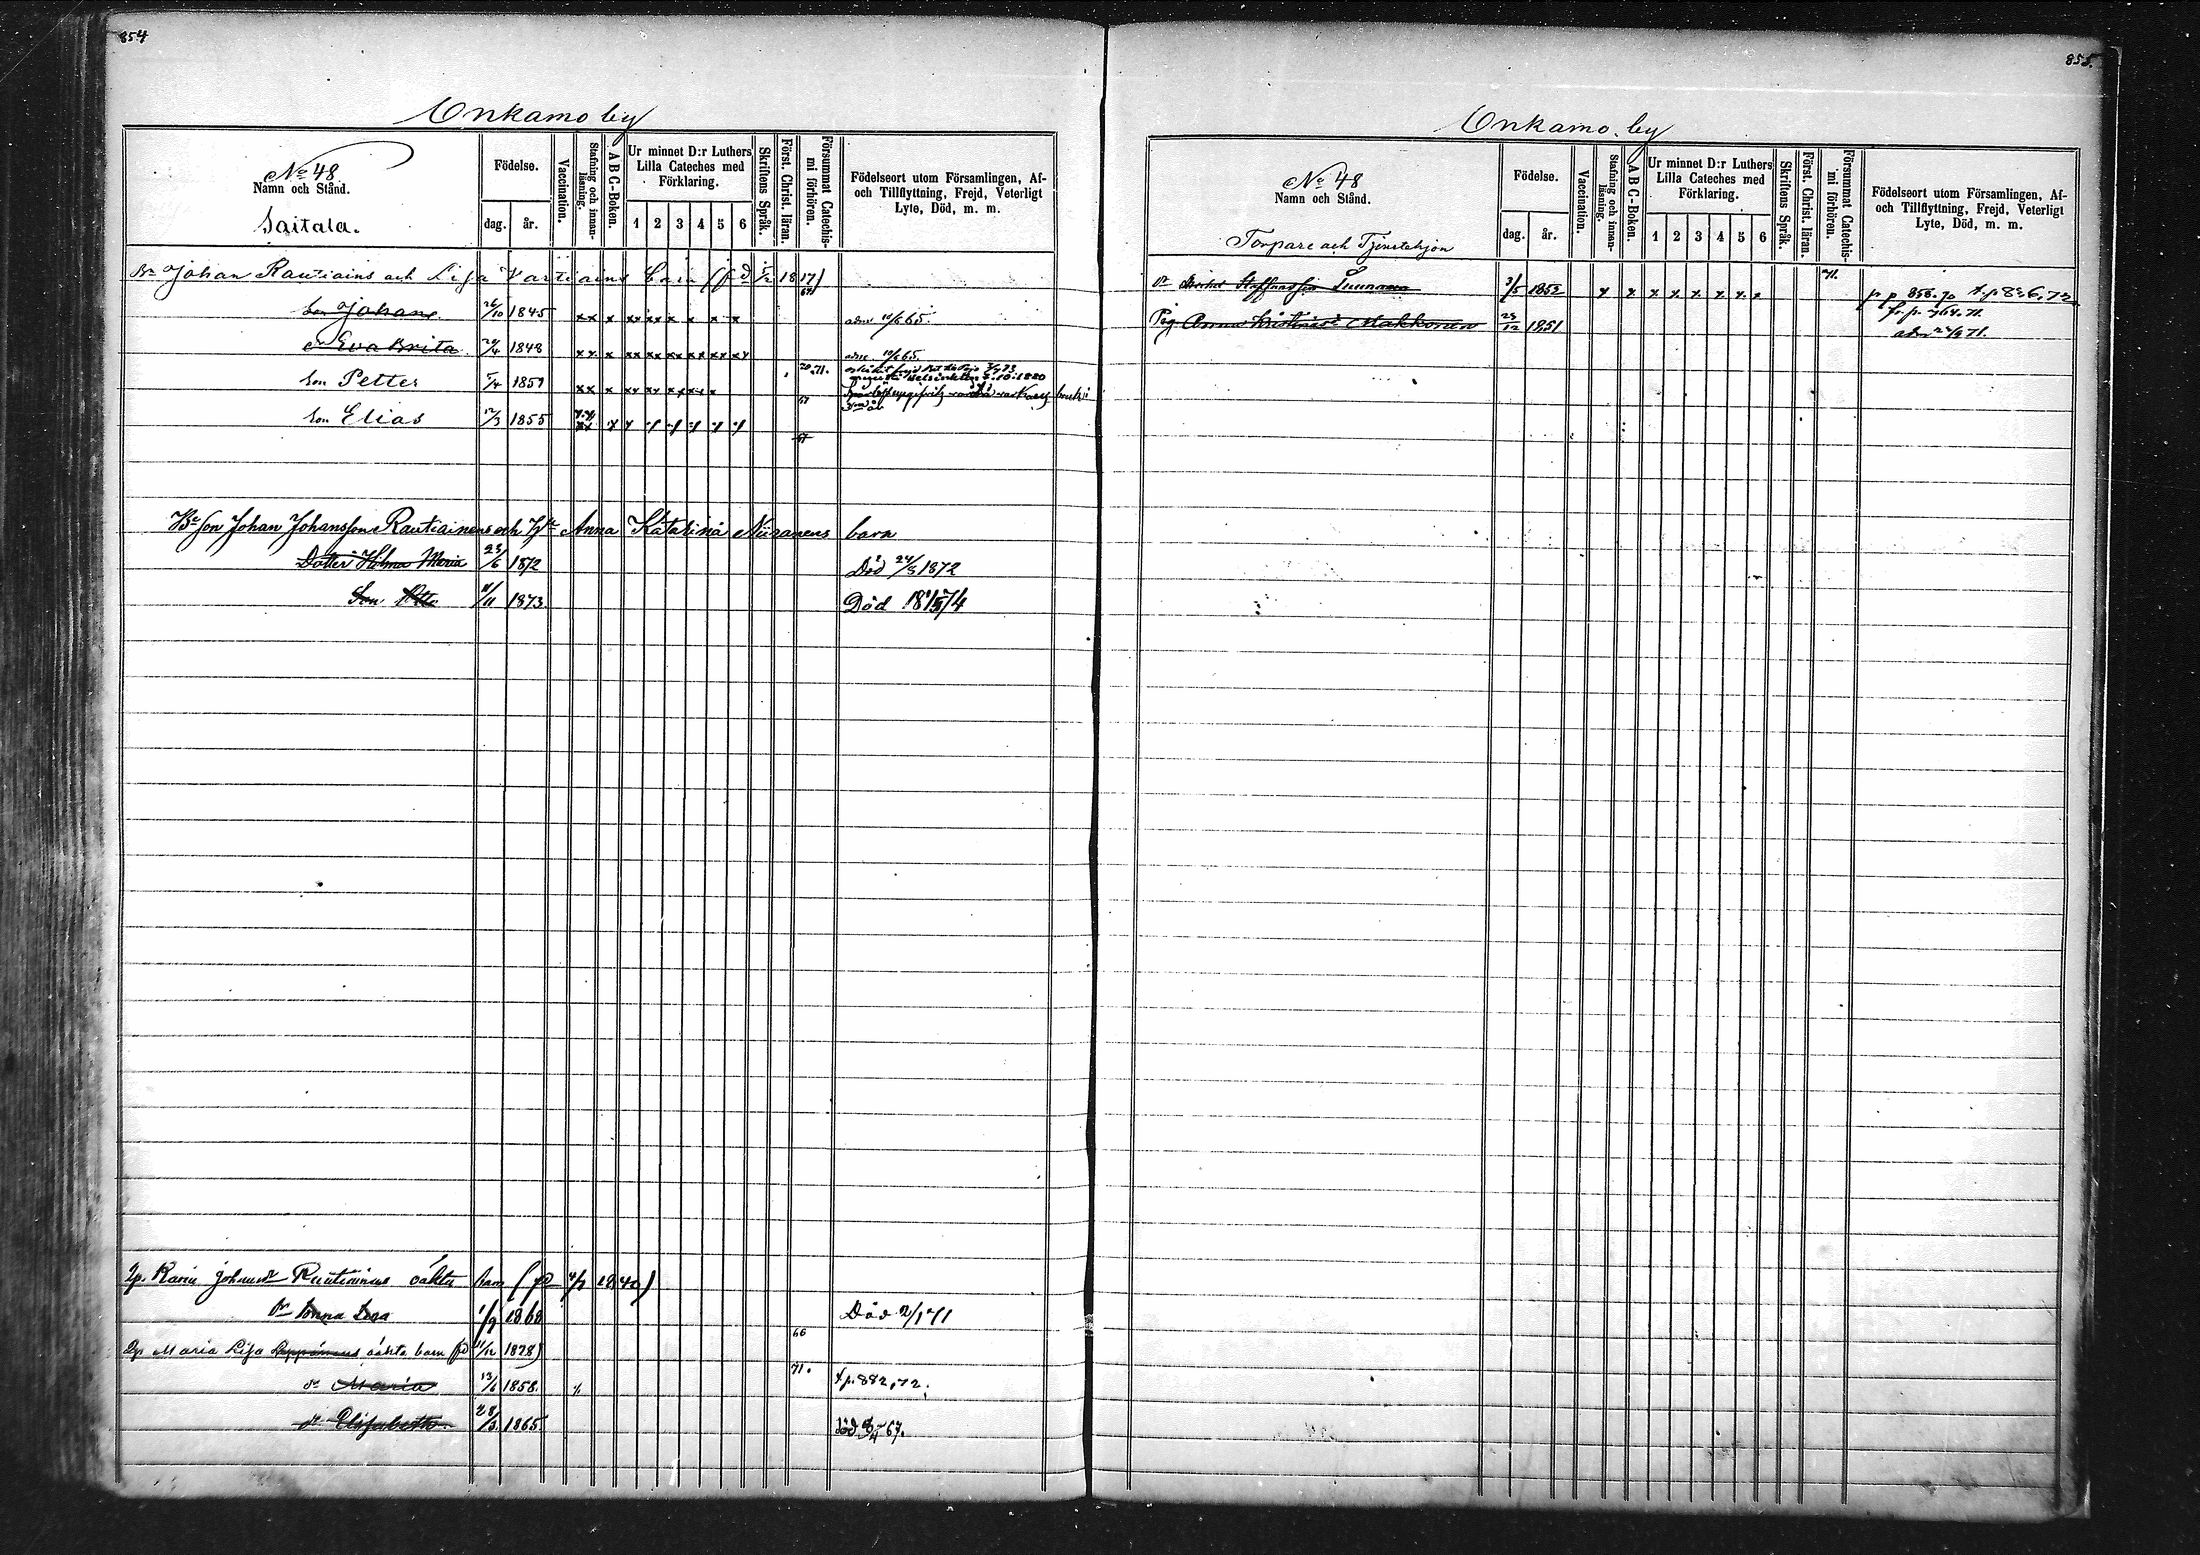 854
Onkamo by
No 48
Namn och Stånd.
Saitala.
Födelse.
dag. år.
Vaccination.
Stafning och innan-läsning.
A B C-Boken.
Ur minnet D:r Luthers Lilla Cateches med Förklaring.
1 2 3 4 5 6
Skriftens Språk.
Först. Christ. läran.
Försummat Catechis-mi förhören.
Födelseort utom Församlingen, Af-
och Tillflyttning, Frejd, Veterligt
Lyte, Död, m. m.
Johan Rautiains och Lisa Vartiains barn (fd 5/12 1817)
Son Johan 26/10 1845 adm 10/6 65.
Eva Brita 24/4 1848 adm. 10/6 65.
Son Petter 5/4 1851 70.71.
Son Elias 12/3 1855
Bde Son Johan Johansson Rautiainens och Anna Katarina Niiranens barn
Dotter Hilma Maria 23/6 1872 Död 24/8 1872
Son Otto 11/11 1873. Död 18 1/5 74
Johansdr Rautiainens oäkta barn (fd 4/7 1840)
Dr Anna Lisa 1/9 1868 Död 2/1 71
Maria Lisa oäkta barn (fd 11/12 1828) 66
dr Maria 13/6 1858. 71. t.p. 882, 72.
dr Elisabeth 28/3. 1865. död 8/4 67.
855.
Onkamo by
No 48
Namn och Stånd.
Torpare och Tjenstehjon
Födelse.
dag. år.
Vaccination.
Stafning och innan-läsning.
A B C-Boken.
Ur minnet D:r Luthers Lilla Cateches med Förklaring.
1 2 3 4 5 6
Skriftens Språk.
Först. Christ. läran.
Försummat Catechis-mi förhören.
Födelseort utom Församlingen, Af-
och Tillflyttning, Frejd, Veterligt
Lyte, Död, m. m.
Staffansson 3/5 1852 71. fr p 858.70 t.p. 856.72
Pig Anna Kristina Makkonen 23/12 1851 fr. p. 764.71.
adm 24/9 71.